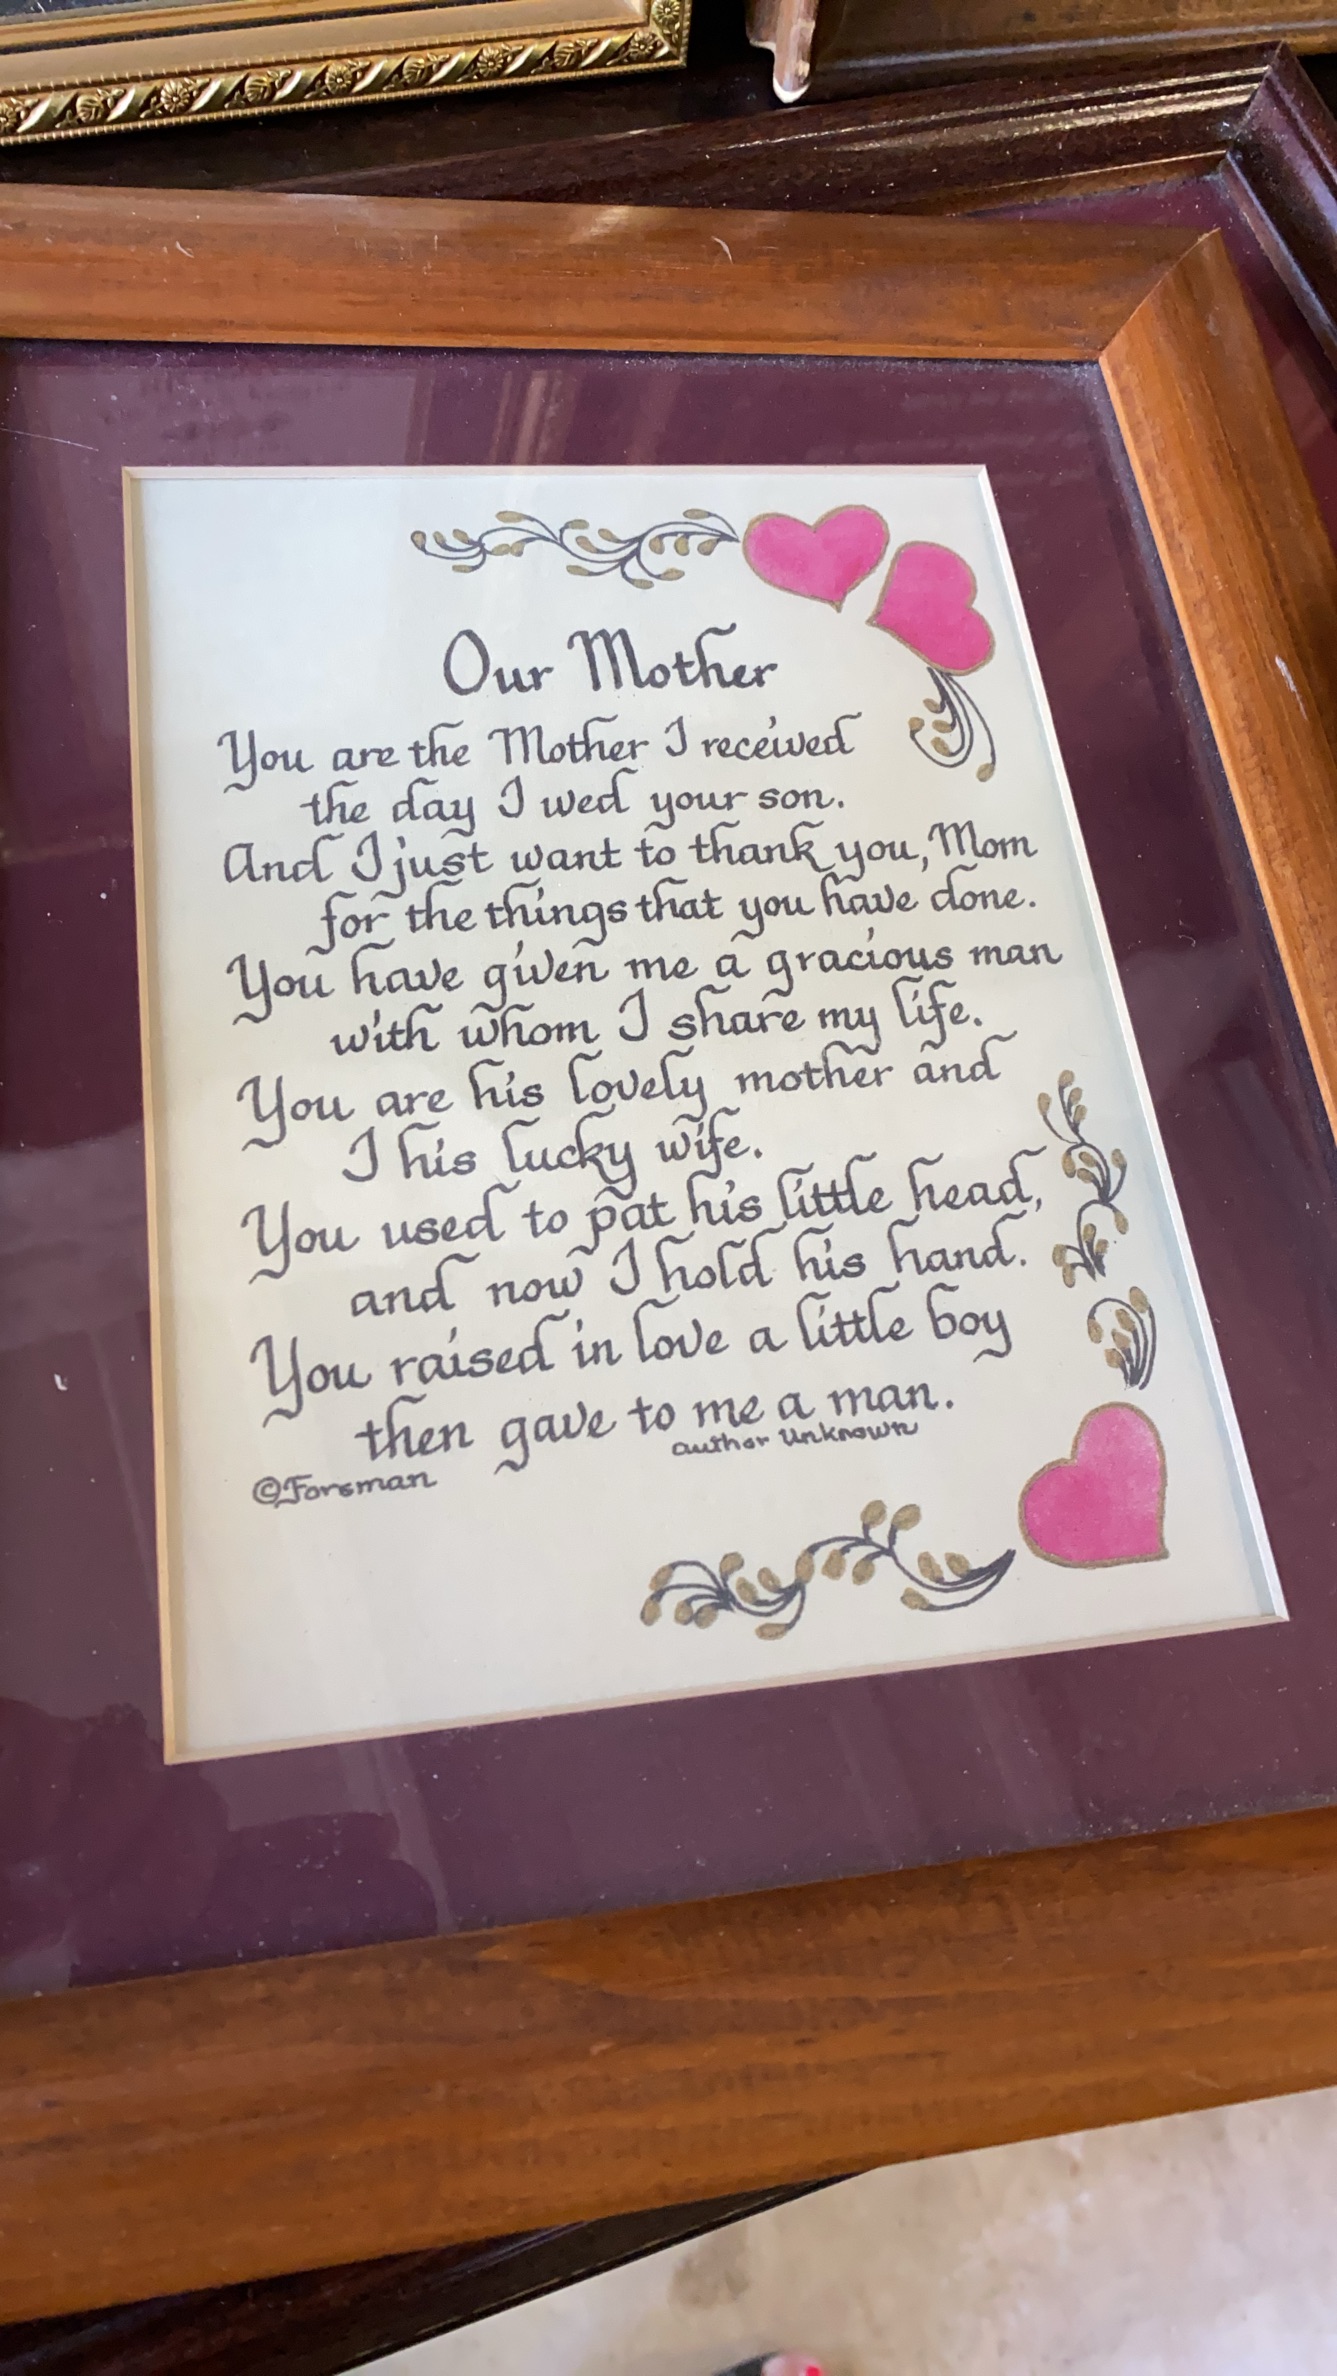 Our Mother
You are the Mother I received
the day I wed your son.
And I just want to thank you, Mom
for the things that you have done.
You have given me a gracious man
with whom I share my life.
You are his lovely mother and
I his lucky wife.
You used to pat his little head,
and now I hold his hand.
You raised in love a little boy
then gave to me a man.
author Unknown
©Forsman